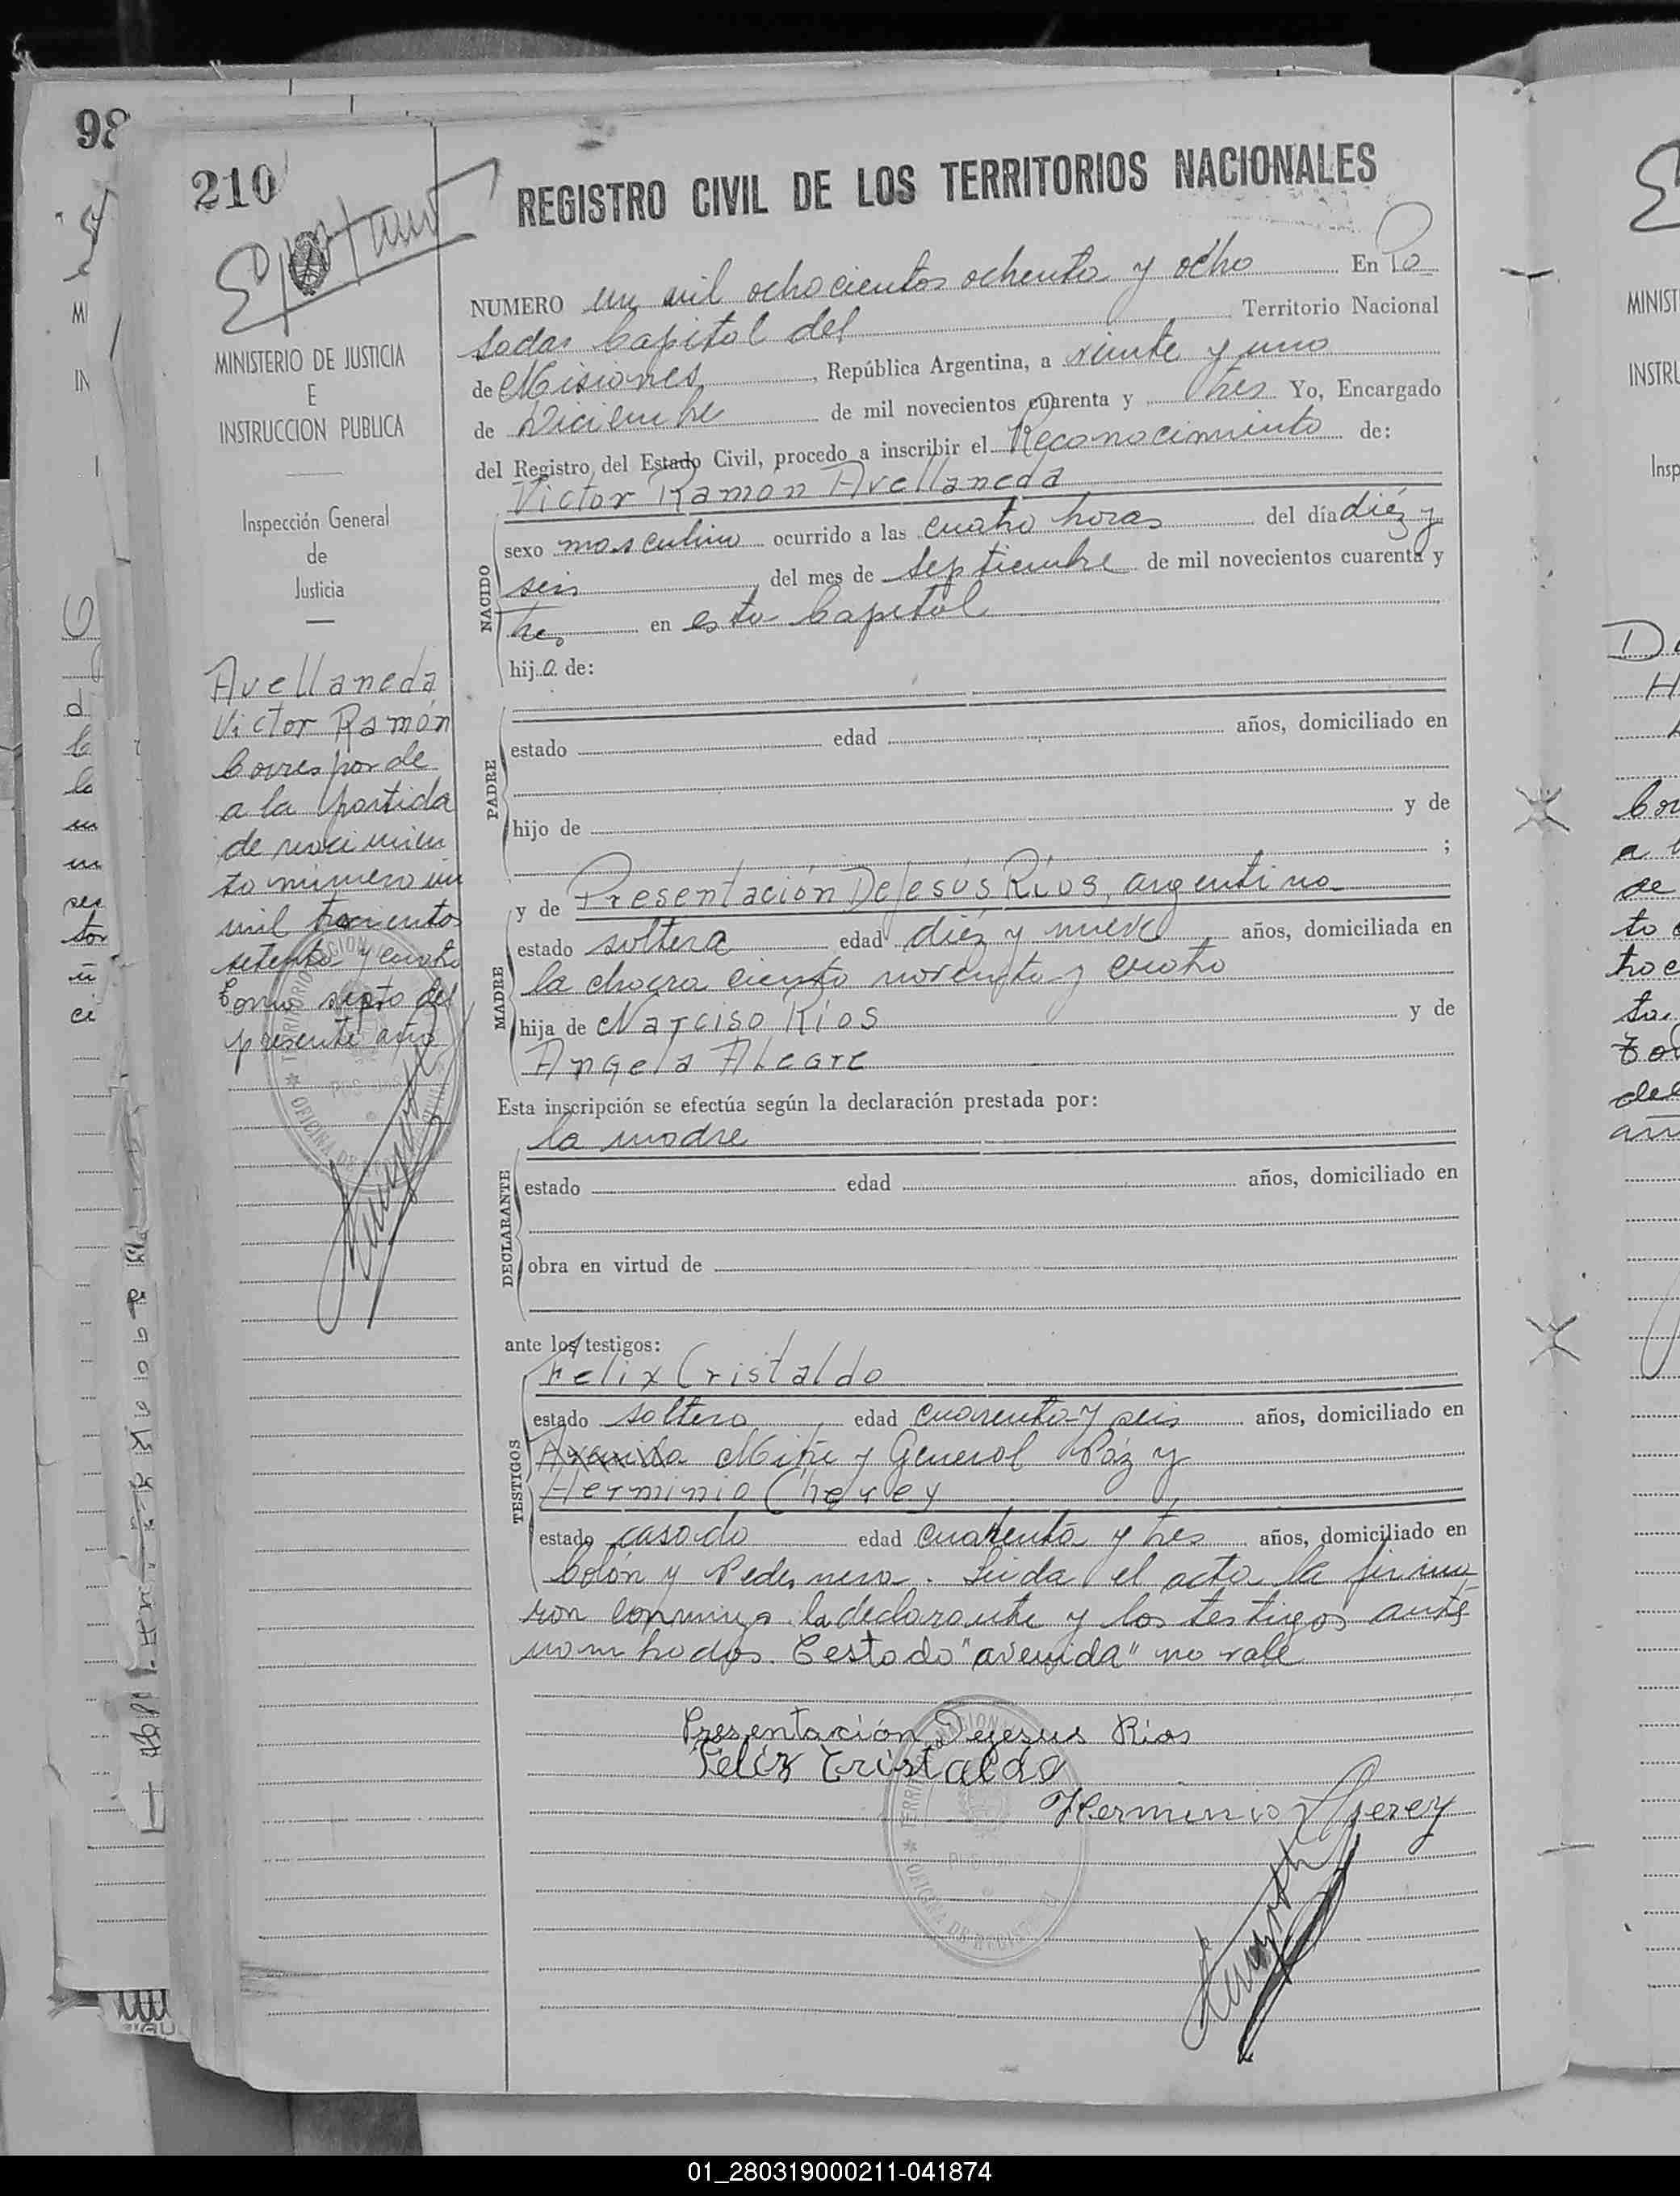 98
210
REGISTRO CIVIL DE LOS TERRITORIOS NACIONALES
NUMERO un mil ochocientos ochenta y ocho En Po
sadas Capital del Territorio Nacional
de Misiones, República Argentina, a veinte y uno
de Diciembre de mil novecientos cuarenta y tres Yo, Encargado
del Registro del Estado Civil, procedo a inscribir el Reconocimiento de:
Victor Ramón Avellaneda
NACIDO
sexo masculino ocurrido a las cuatro horas del día diéz y
seis del mes de septiembre de mil novecientos cuarenta y
tres en esta Capital
hij o de:
PADRE
estado edad años, domiciliado en
hijo de y de
;
MADRE
y de Presentación DeJesús Ríos, argentina
estado soltera edad diéz y nueve años, domiciliada en
la chacra ciento noventa y cuatro
hija de Narciso Ríos y de
Angela Alegre
Esta inscripción se efectúa según la declaración prestada por:
la madre
DECLARANTE
estado edad años, domiciliado en
obra en virtud de
ante los testigos:
TESTIGOS
Felix Cristaldo
estado soltero edad cuarenta y seis años, domiciliado en
Avenida Mitre y General Páz y
Herminio Cherey
estado casado edad cuarenta y tres años, domiciliado en
Colón y Pedernera. Leída el acta la firma
ron conmigo la declarante y los testigos ante
nombrados. Testado "avenida" no vale
Presentación Dejesus Rios
Felix Cristaldo
Herminio Cherey
MINISTERIO DE JUSTICIA
E
INSTRUCCION PUBLICA
Inspección General
de
Justicia
Avellaneda
Victor Ramón
Corresponde
a la partida
de nacimien
to número un
mil trescientos
setenta y cuatro
tomo sexto del
presente año
01_280319000211-041874